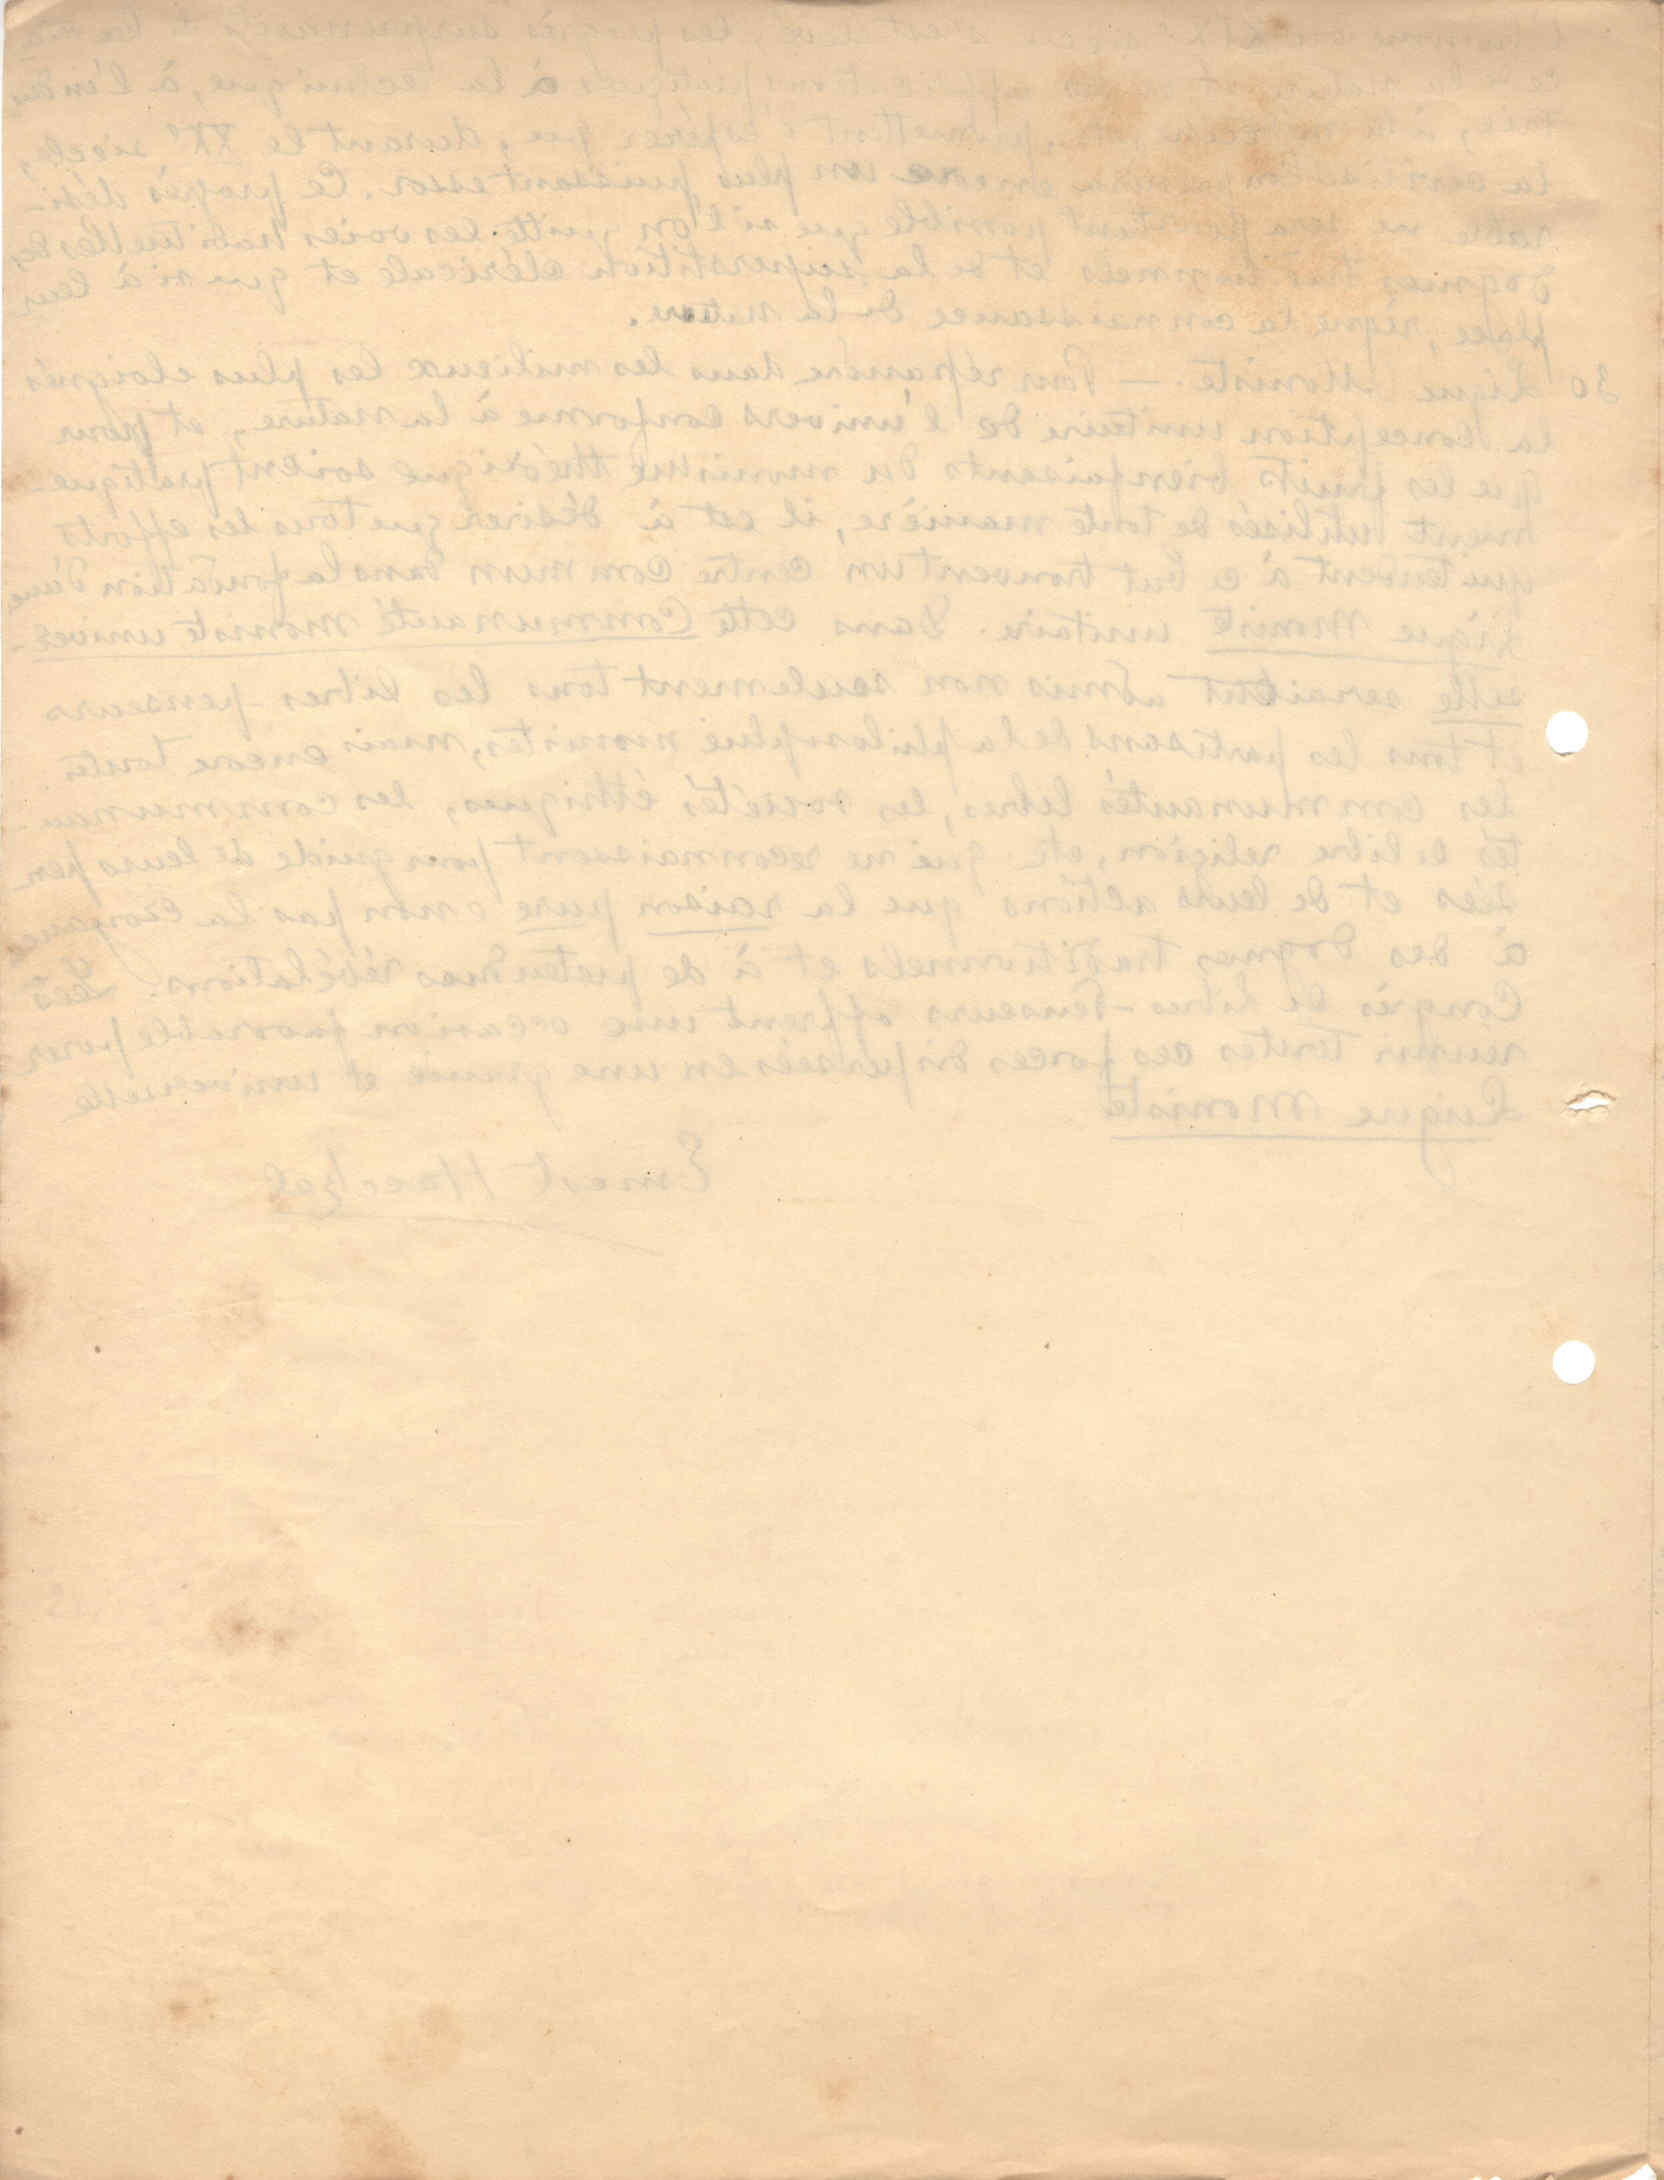 l'homme au XIXe siècle s'est élevé, les progrès surprenants de la
ce de la nature et les applications pratiques à la technique, à l'indus
trie, à la médecine, etc, permettent d'espérer que, durant le XXe siècle,
la civilisation prendra encore un plus puissant essor. Ce progrès dési-
rable ne sera pourtant possible que si l'on quitte les voies habituelles des
dogmes traditionnels et de la superstition cléricale et que si à leur
place, règne la connaissance de la nature.
30 Ligue Moniste. — Pour répandre dans les milieux les plus eloignés
la conception unitaire de l'univers conforme à la nature, et pour
que les fruits bienfaisants du monisme théorique soient pratique-
ment utilisés de toute manière, il est à désirer que tous les efforts
qui tendent à ce but trouvent un centre commun dans la fondation d'une
Ligue Moniste unitaire. Dans cette Communauté moniste univer-
selle seraient admis non seulement tous les libres-penseurs
et tous les partisans de la philosophie moniste, mais encore toutes
les communautés libres, les sociétés éthiques, les communau-
tés de libre religion, etc qui ne reconnaissent pour guide de leurs pen
sées et de leurs actions que la raison pure & non pas la croyance
à des dogmes traditionnels et à de prétendues révélations. Les
Congrès de Libres-Penseurs offrent une occasion favorable pour
reunir toutes ces forces dispersées en une grande et universelle
Ligue Moniste
Ernest Haeckel